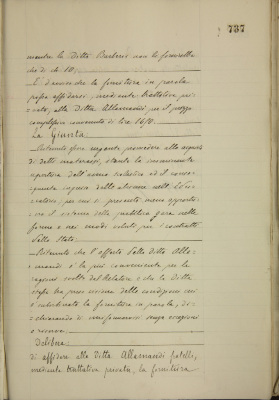 737
mentre la Ditta Barberis non le fornirebbe
che di L. 10.
È d'avviso che la fornitura in parola
possa affidarsi, mediante trattativa pri-
vata, alla Ditta Allamandi, per il prezzo
complessivo convenuto di Lire 1610.
La Giunta
Ritenuto essere urgente provvedere alla
di detti materassi, stante la
apertura dell'anno scolastico ed il conse-
guente ingresso delle alunne nell'
per cui si presenta meno opportu-
no il sistema della pubblica gara nelle
forme e nei modi voluti per i contratti
dello Stato;
Ritenuto che l'offerta della ditta Alla-
mandi è la più conveniente per le
ragioni svolte dal Relatore, e che la Ditta
stessa ha preso visione delle condizioni cui
è subordinata la fornitura in parola, di-
chiarando di uniformarvisi senza eccezioni
o riserve;
Delibera
di affidare alla Ditta Allamandi fratelli,
mediante trattativa privata, la fornitura